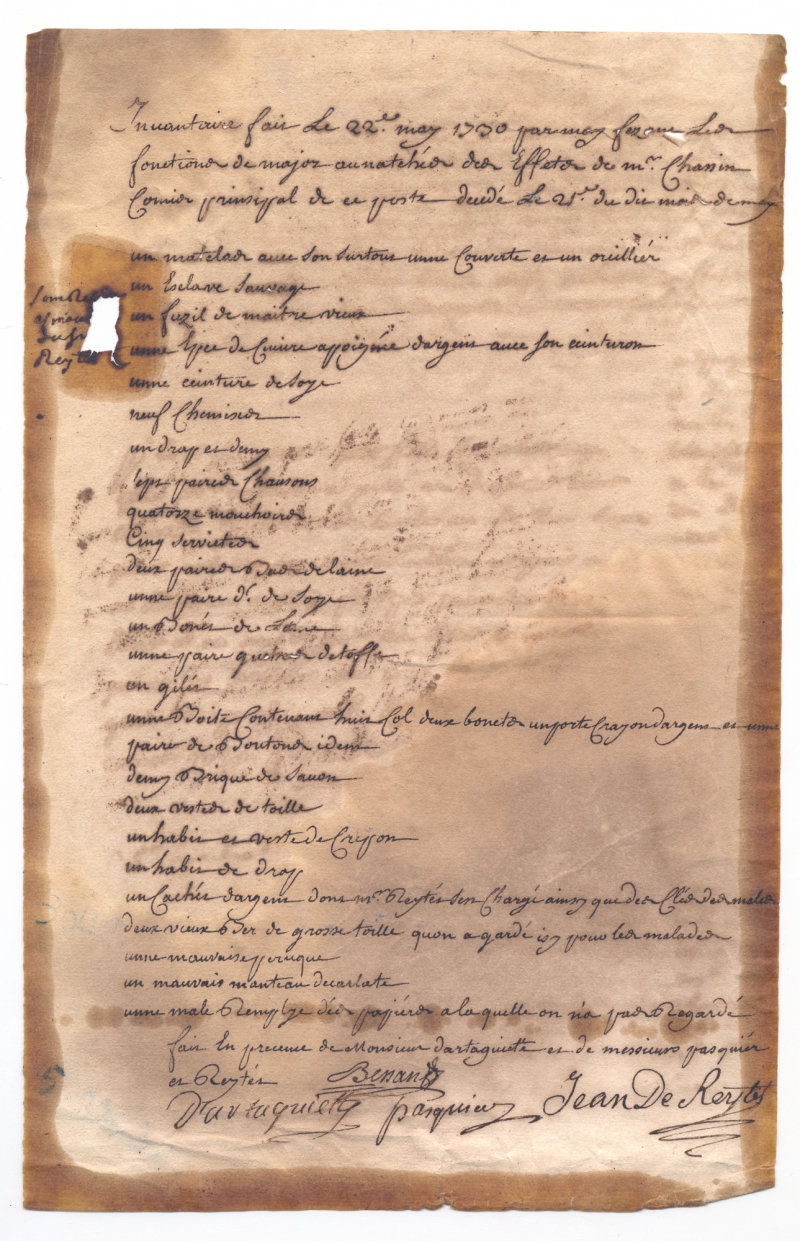 Inventaire fait Le 22.e may 1730 par moy fesant Les
fonctions de major au natchés des Effets de mr. Chassin
Comis prinsipal de ce poste decedé Le 21.e du dit mois de may
un matelas avec son surtous unne Couverte et un oreillier
un Esclave Sauvage
un fuzil de maitre vieux
unne Epée de Cuivre a poignée dargent avec son ceinturon
unne ceinture de Soye
neuf Chemises
un drap et demy
sept paires Chausons
quatorze mouchoires
Cinq serviettes
deux paires Bas de laine
unne paire d.o de Soye
un Bonét de Laine
unne paire guetres detoffe
un gilét
unne Boite Contenant huit Col deux bonets un porte Crayon dargent et unne
paire de Boutons idem
demy Brique de Savon
deux vestes de toille
un habit et veste de Crepon
un habit de drap
un Cachét dargent dont mr. Reytés sest Chargé ainsy que des Clés des males
deux vieux de grosse toille quon a gardé isy pour les malades
unne mauvaise peruque
un mauvais manteau decarlate
unne male Remplye dés papiérs a la quelle on n'a pas Regardé
fait En presence de Monsieur dartaguiette et de messieurs pasquiér
et Reytés Benard
D'artaguiette pasquier Jean De Reytés